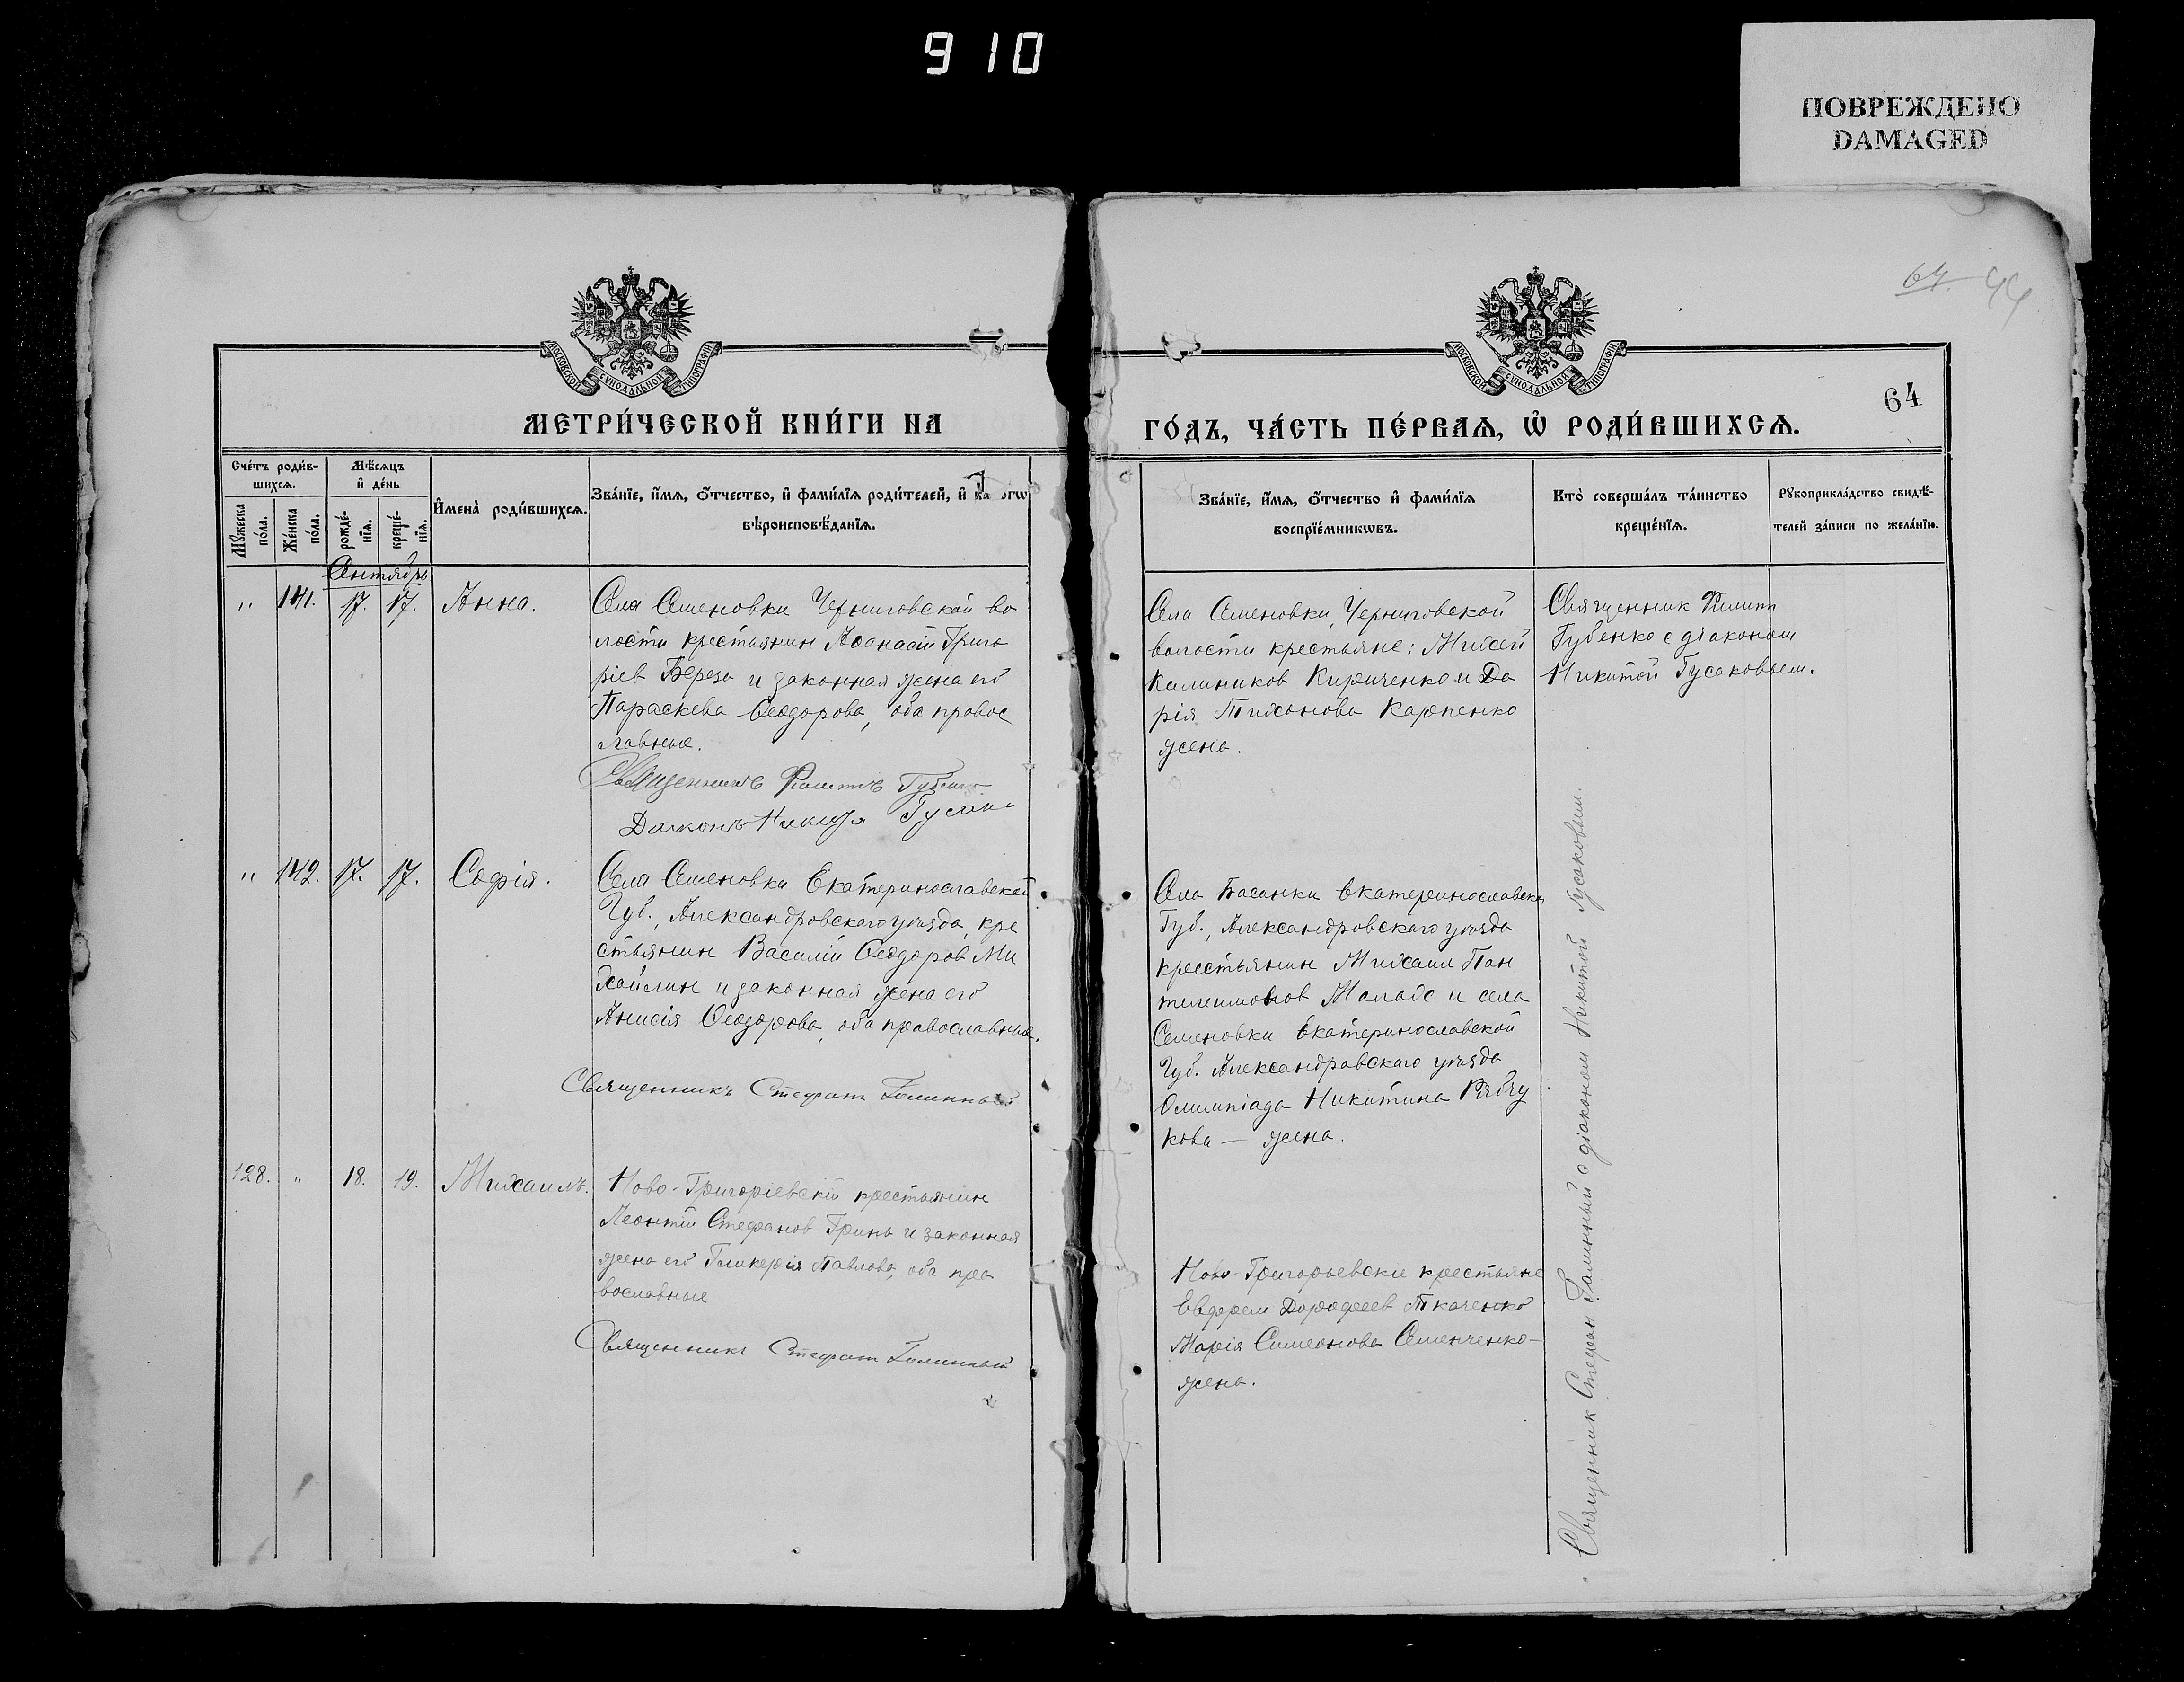 910
ПОВРЕЖДЕНО
DAMAGED
64. 44
МОСКОВСКОЙ СѴНОДАЛЬНОЙ ТИПОГРАФІИ
МОСКОВСКОЙ СѴНОДАЛЬНОЙ ТИПОГРАФІИ
64
МЕТРИ́ЧЕСКОЙ КНИ́ГИ НА
ГО́ДЪ, ЧА́СТЬ ПЕ́РВАѦ, Ѡ҆ РОДИ́ВШИХСѦ.
Сче́тъ роди́в-
шихсѧ.
Мꙋ́жеска по́ла.
Же́нска по́ла.
Мѣ́сѧцъ
и҆ де́нь
рожде́-нїѧ.
креще́-нїѧ.
И҆мена̀ роди́вшихсѧ.
Зва́нїе, и҆́мѧ, ѻ҆́тчество, и҆ фами́лїѧ роди́телей, и҆ ка огѡ
вѣроисповѣ́данїѧ.
Зва́нїе, и҆́мѧ, ѻ҆́тчество и҆ фами́лїѧ
воспрїе́мникѡвъ.
Кто̀ соверша́лъ та́инство
креще́нїѧ.
Рꙋкоприкла́дство свидѣ́-
телей за́писи по жела́нїю.
" 141. 17. 17. Анна.
Села Семеновки Черниговской во
лости крестьянин Афанасій Григо
ріев Береза и законная жена его
Параскева Феодорова, оба правос
лавные.
Священникъ Филиппъ Губенко
Діаконъ Никита Гусак
Села Семеновки, Черниговской
волости крестьяне: Михей
Калиников Кириченко и Да
рія Тихонова Карпенко
жена.
Священник Филипп
Губенко с діаконом
Никитой Гусаковым.
" 142. 17. 17. Софія.
Села Семеновки Екатеринославской
Губ., Александровскаго уѣзда, кре
стьянин Василій Феодоров Ми
хайлин и законная жена его
Анисія Феодорова, оба православные.
Священникъ Стефан
Села Басанки Екатеринославской
Губ., Александровскаго уѣзда
крестьянин Михаил Пан
телеимонов и села
Семеновки Екатеринославской
Губ. Александровскаго уѣзда
Олимпіада Никитина
кова — жена.
128. " 18. 19. Михаилъ.
Ново-Григоріевскій крестьянин
Леонтій Стефанов Гринь и законная
жена его Гликерія Павлова, оба пра
вославные
Священникъ Стефан
Ново-Григорьевские крестьяне
Дорофеев Ткаченко
Марія Симеонова Семенченко-
жена.
Священник Стефан с діаконом Никитой Гусаковым.